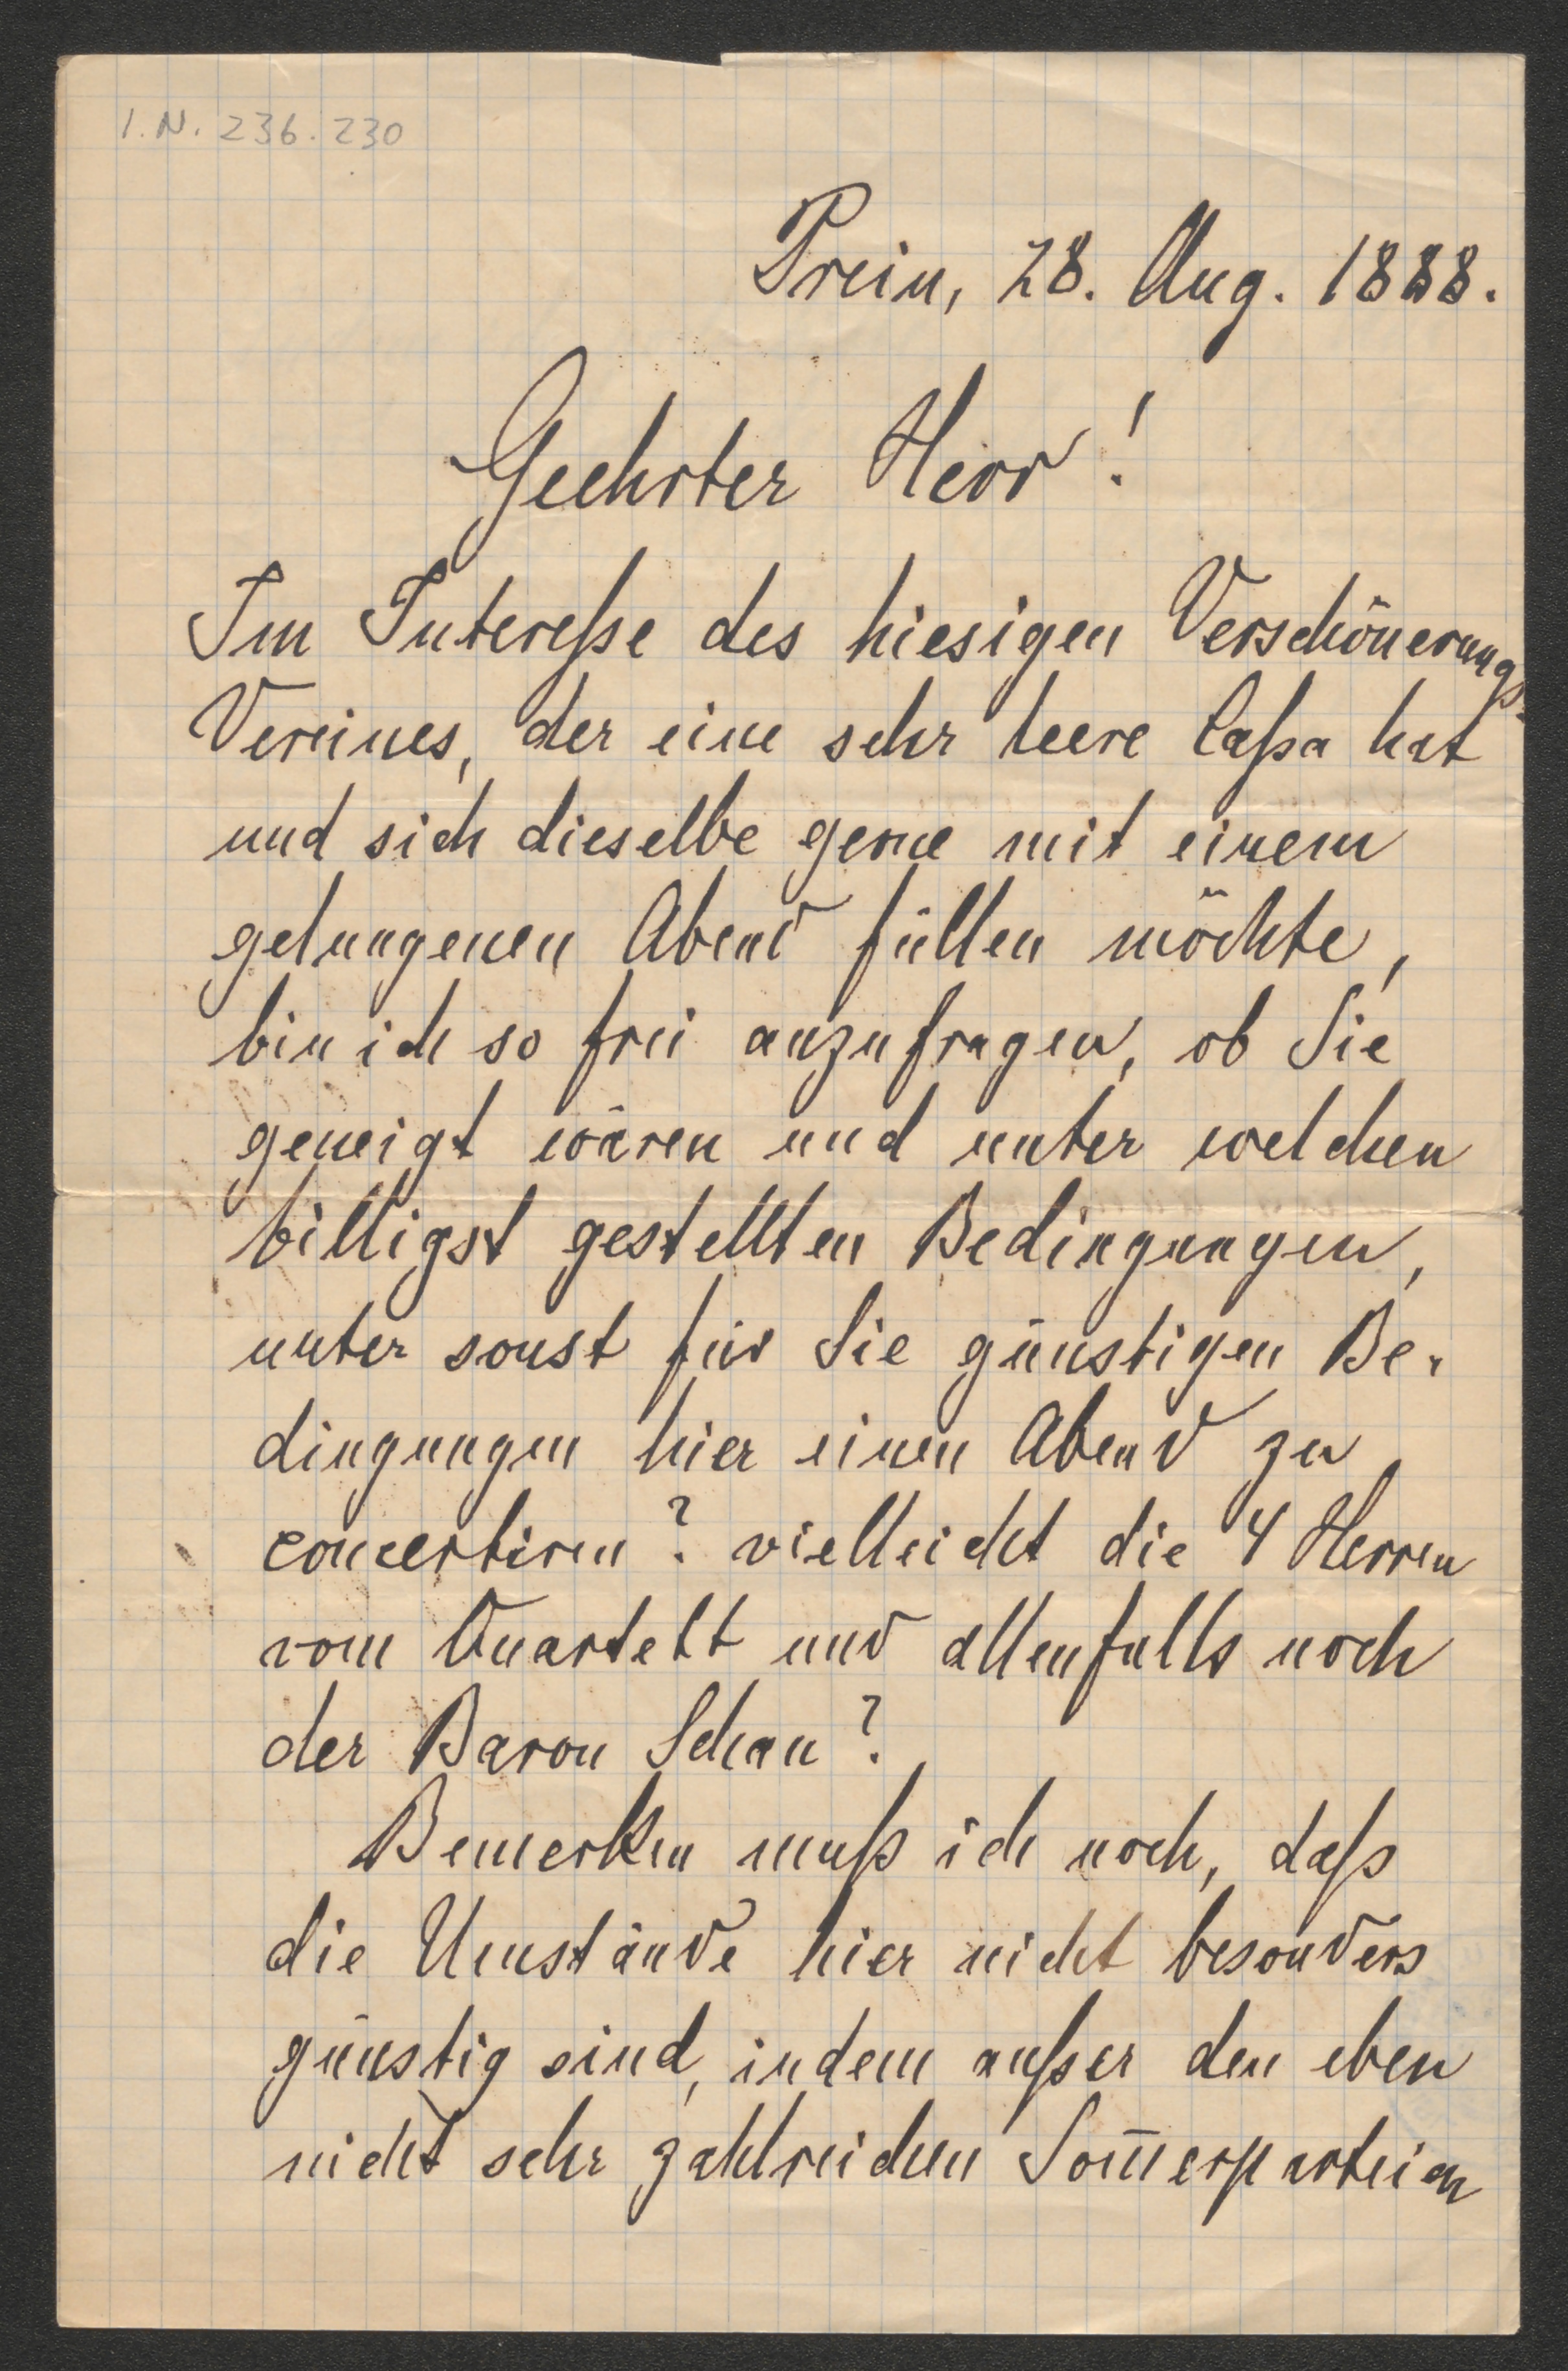 I.N. 236.230
Prein, 28. Aug. 1888.
Geehrter Herr!
Im Interesse des hiesigen Verschönerungs-
Vereines, der eine sehr leere Cassa hat
und sich dieselbe gerne mit einem
gelungenen Abend füllen möchte,
bin ich so frei anzufragen, ob Sie
geneigt wären und unter welchen
billigst gestellten Bedingungen,
unter sonst für Sie günstigen Be-
dingungen hier einen Abend zu
concertiren? vielleicht die 4 Herren
vom Quartett und allenfalls noch
der Baron Schan?
Bemerken muß ich noch, daß
die Umstände hier nicht besonders
günstig sind, indem außer den eben
nicht sehr zahlreichen Som̄erparteien